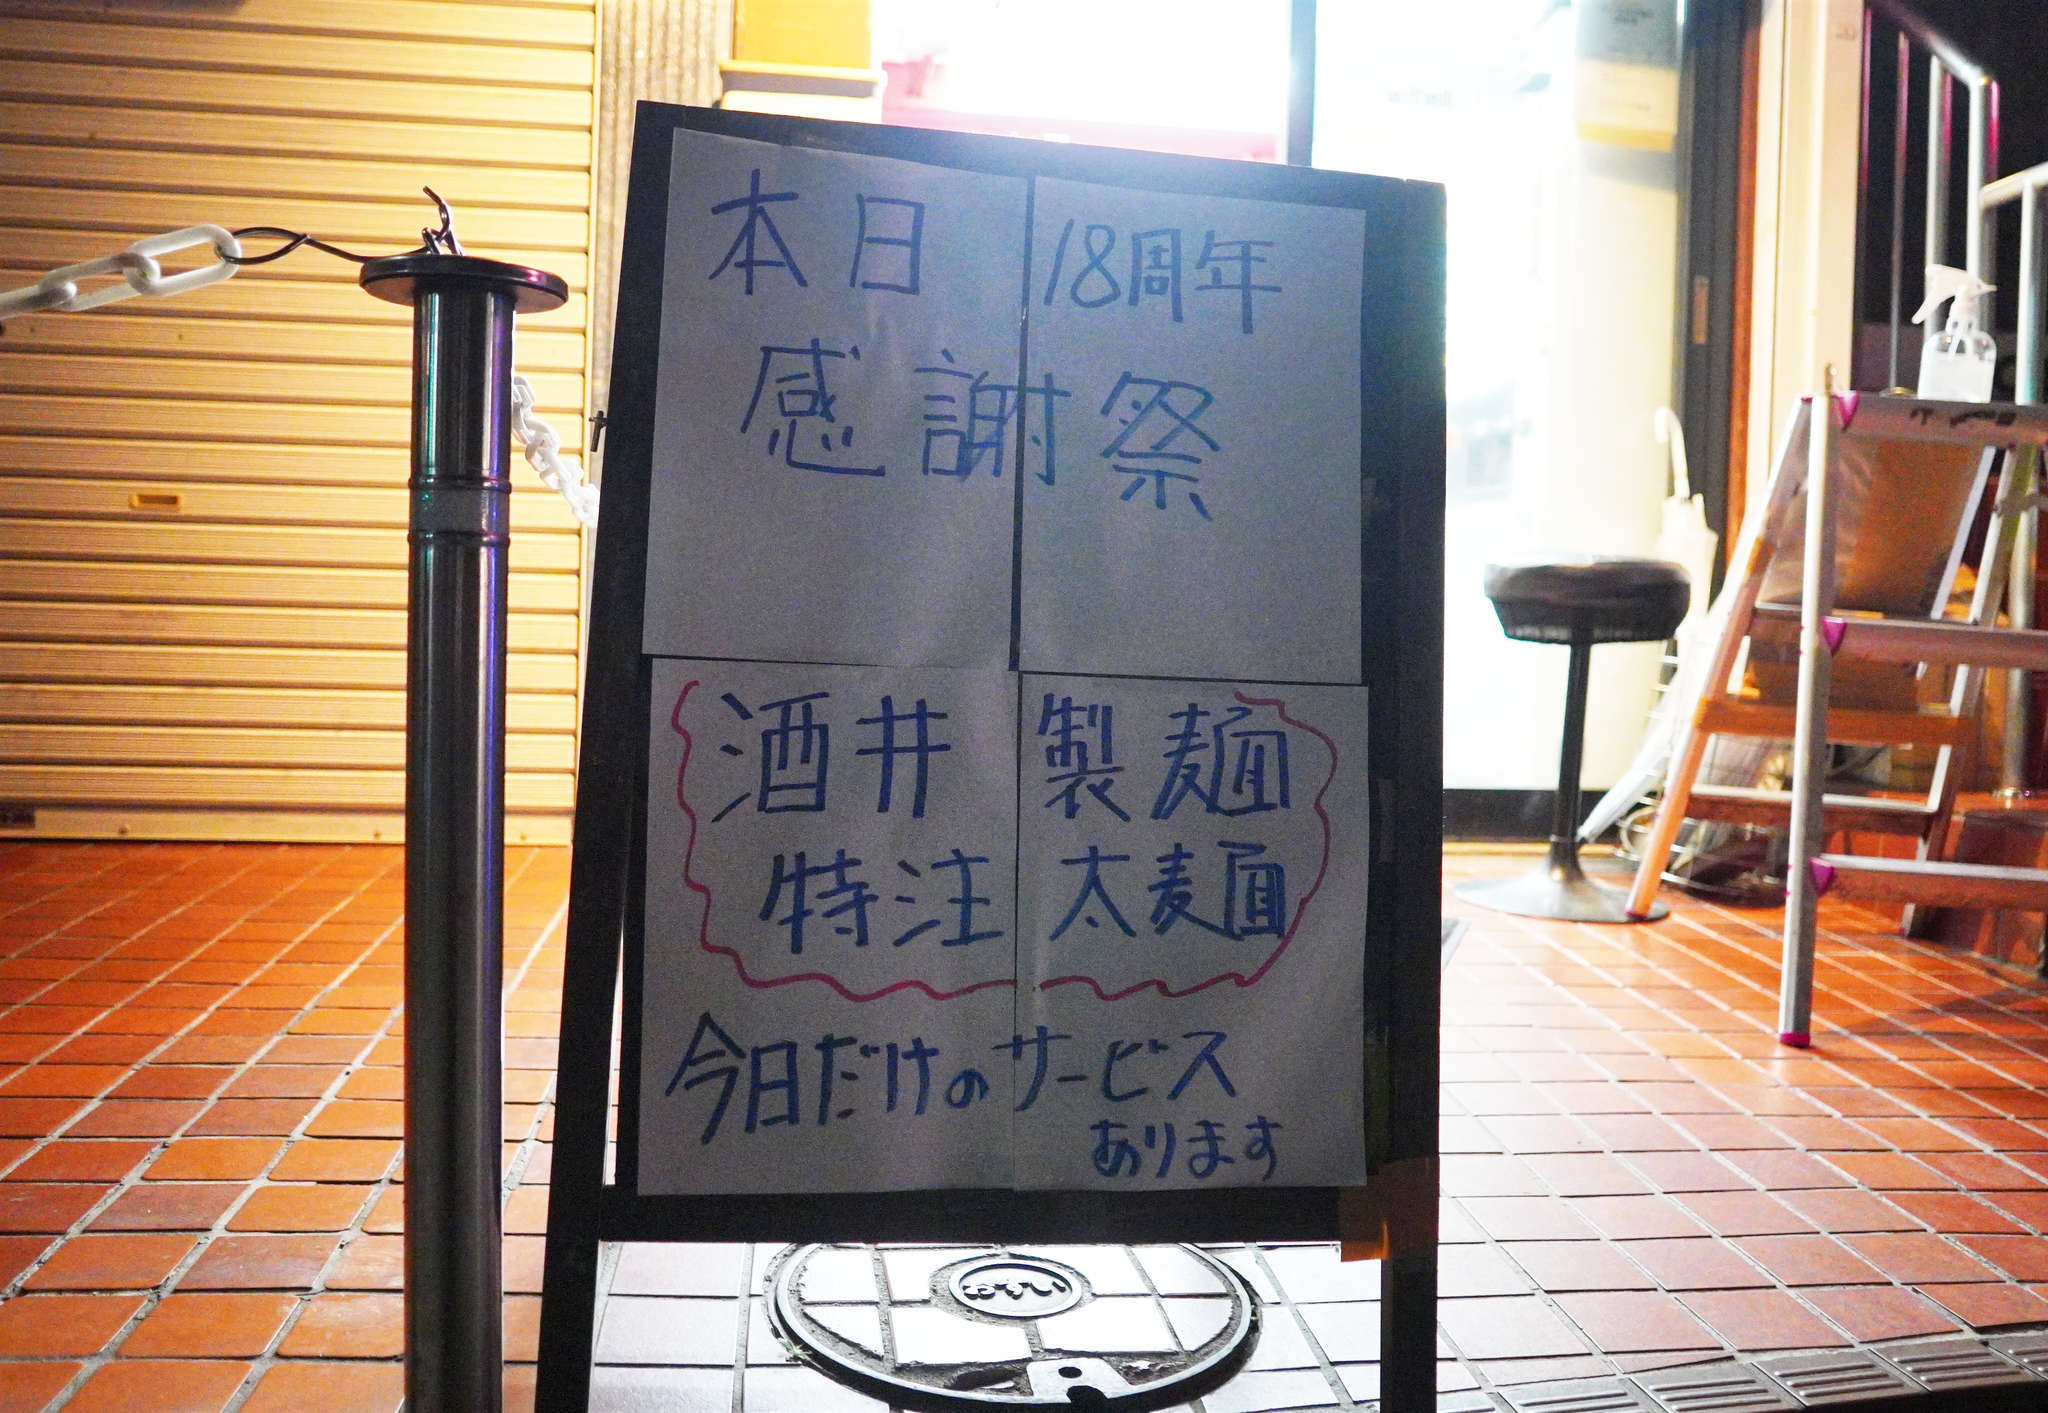 本日 18周年
感謝祭
酒井製麺
特注太麺
今日だけのサービス
あります